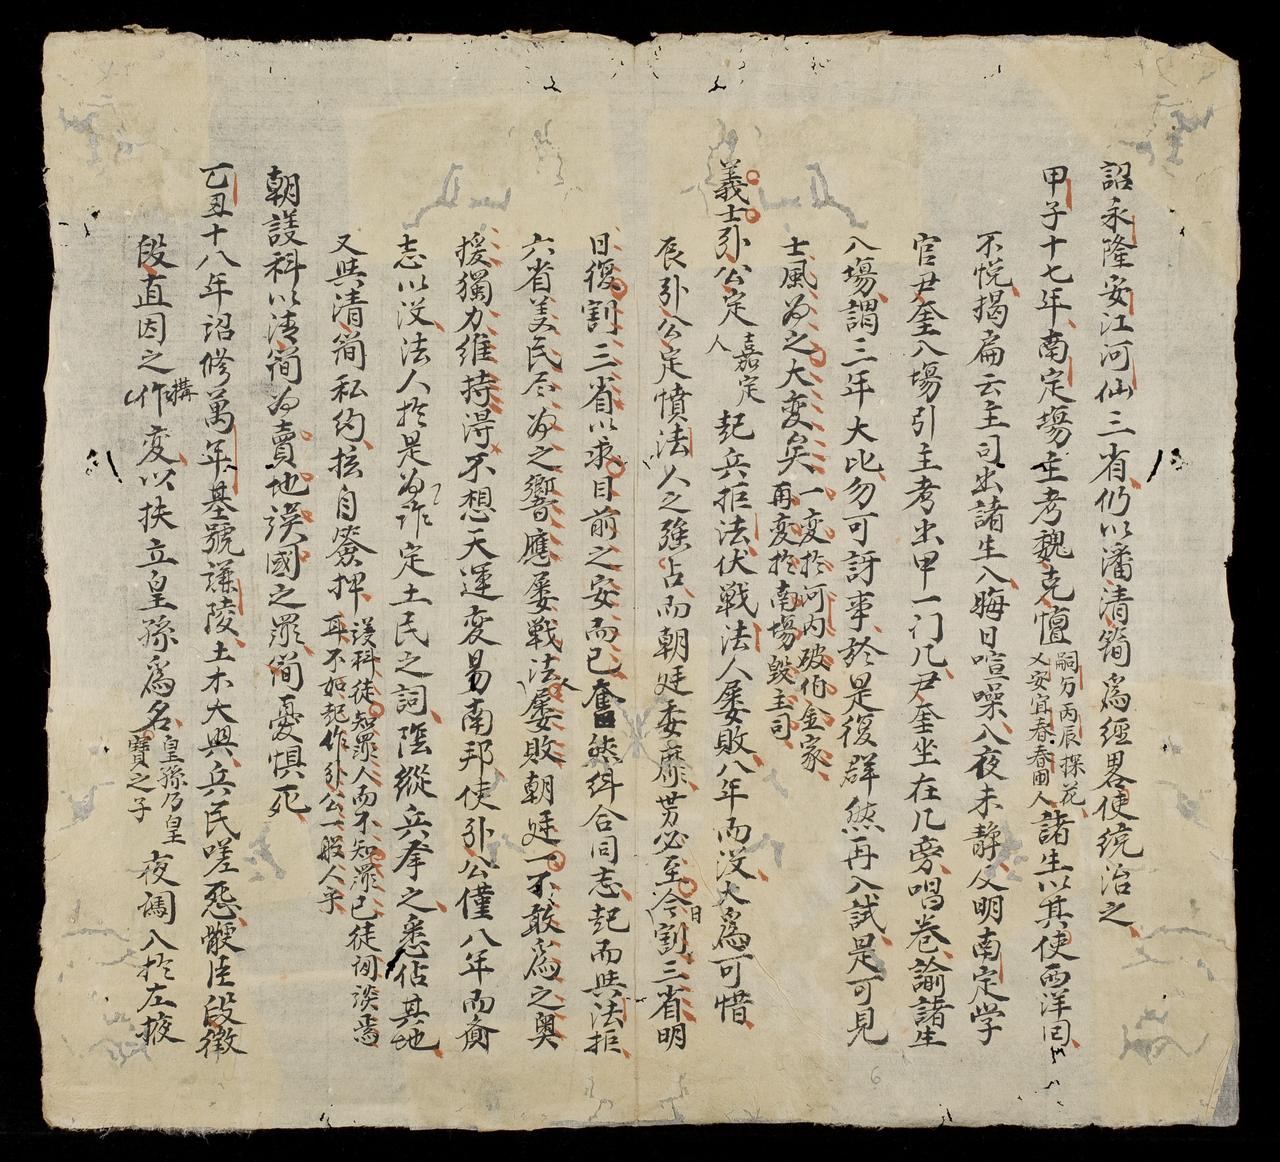 詔永隆安江河仙三省仍以潘清簡爲經畧使統治之
甲子十七年南定場主考魏克憻嗣勿丙辰探花乂安宜春春田人諸生以其使西洋囘
不悅揭扁云主司出諸生入晦日喧噪入夜未静及明南定学
官尹奎入場引主考出甲一门几尹奎坐在几旁唱巻諭諸生
八塲謂三年大比勿可訝事於是復群然再入試是可見
士風为之大変矣一変扵河内破伯金家再変扵南塲毀主司
義士引公定嘉定人起兵拒法伏戦法人屡敗八年而没大爲可惜
辰引公定憤法人之強占而朝廷委靡勞必至今日割三省明
日復割三省以求目前之安而已奮然糾合同志起而與法拒
六省美民尽为之響應屡戦法人屡敗朝廷一不敢爲之奥
援獨力維持得不想天運変易南邦使引公僅八年而奠
志以没法人扵是为詐定土民之詞陰縱兵拳之悉佔其地
又與清簡私約拡自簽押護科徒知罪人而不知罪已徒訽談焉耳不如起作引公一般人乎
朝議科以清簡为賣地誤國之罪簡憂惧死
乙丑十八年詔修萬年基號謙陵土木大興兵民嗟怨骾臣段徵
段直因之構作変以扶立皇孫爲名皇孫乃皇寶之子夜闯入扵左掖